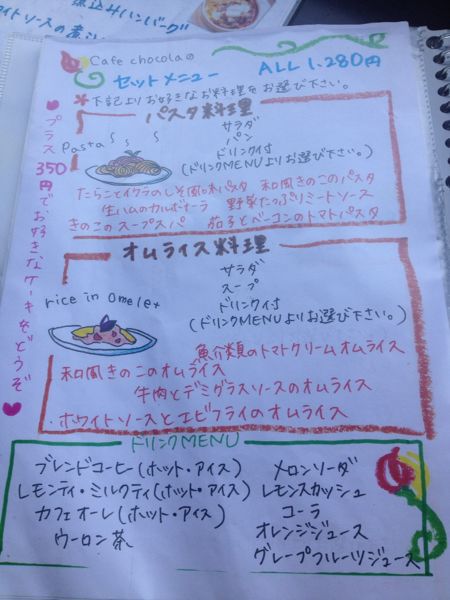 煮込みハンバーグ
ホワイトソースの煮
Cafe chocolaの
セットメニュー
ALL 1.280円
*下記よりお好きなお料理をお選び下さい。
♥プラス350円でお好きなケーキをどうぞ♥
パスタ料理
サラダ
パン
ドリンク付
(ドリンクMENUよりお選び下さい。)
Pasta
たらことイクラのしそ風味パスタ 和風きのこのパスタ
生ハムのカルボナーラ 野菜たっぷりミートソース
きのこのスープスパ 茄子とベーコンのトマトパスタ
オムライス料理
サラダ
スープ
ドリンク付
(ドリンクMENUよりお選び下さい。)
rice in omelet
魚介類のトマトクリームオムライス
和風きのこのオムライス
牛肉とデミグラスソースのオムライス
ホワイトソースとエビフライのオムライス
ドリンクMENU
ブレンドコーヒー(ホット・アイス)
レモンティ・ミルクティ(ホット・アイス)
カフェオーレ(ホット・アイス)
ウーロン茶
メロンソーダ
レモンスカッシュ
コーラ
オレンジジュース
グレープフルーツジュース